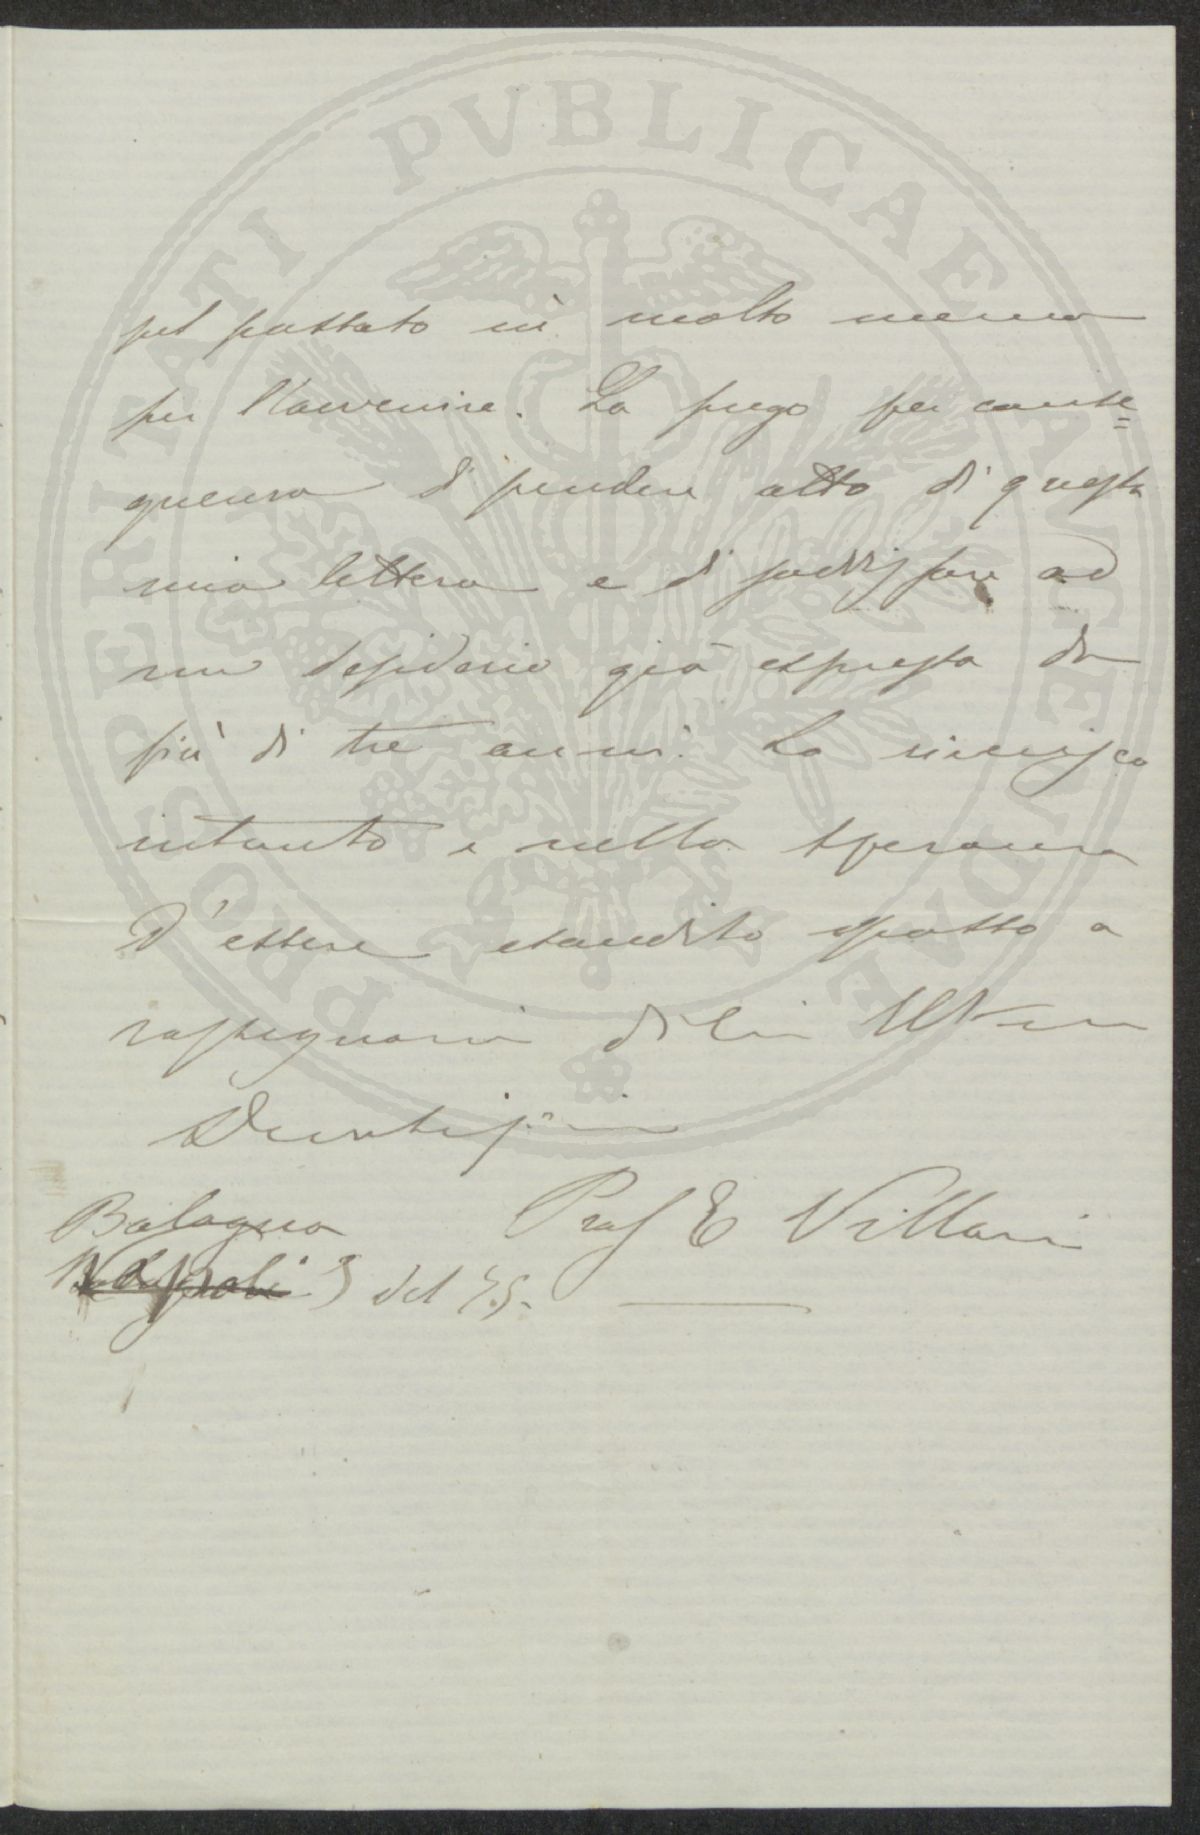 PROSPERITATI PVBLICAE AVGENDAE
pel passato nè molto meno
per l'avvenire. La prego per conse=
guenza di prendere atto di questa
mia lettera e di soddisfare ad
un desiderio già espresso da
più di tre anni. La riverisco
intanto e nella speranza
d'essere esaudito passo a
rassegnarmi di Lei
Devotissimo
Prof E Villari
Bologna
Napoli 3 del 75.